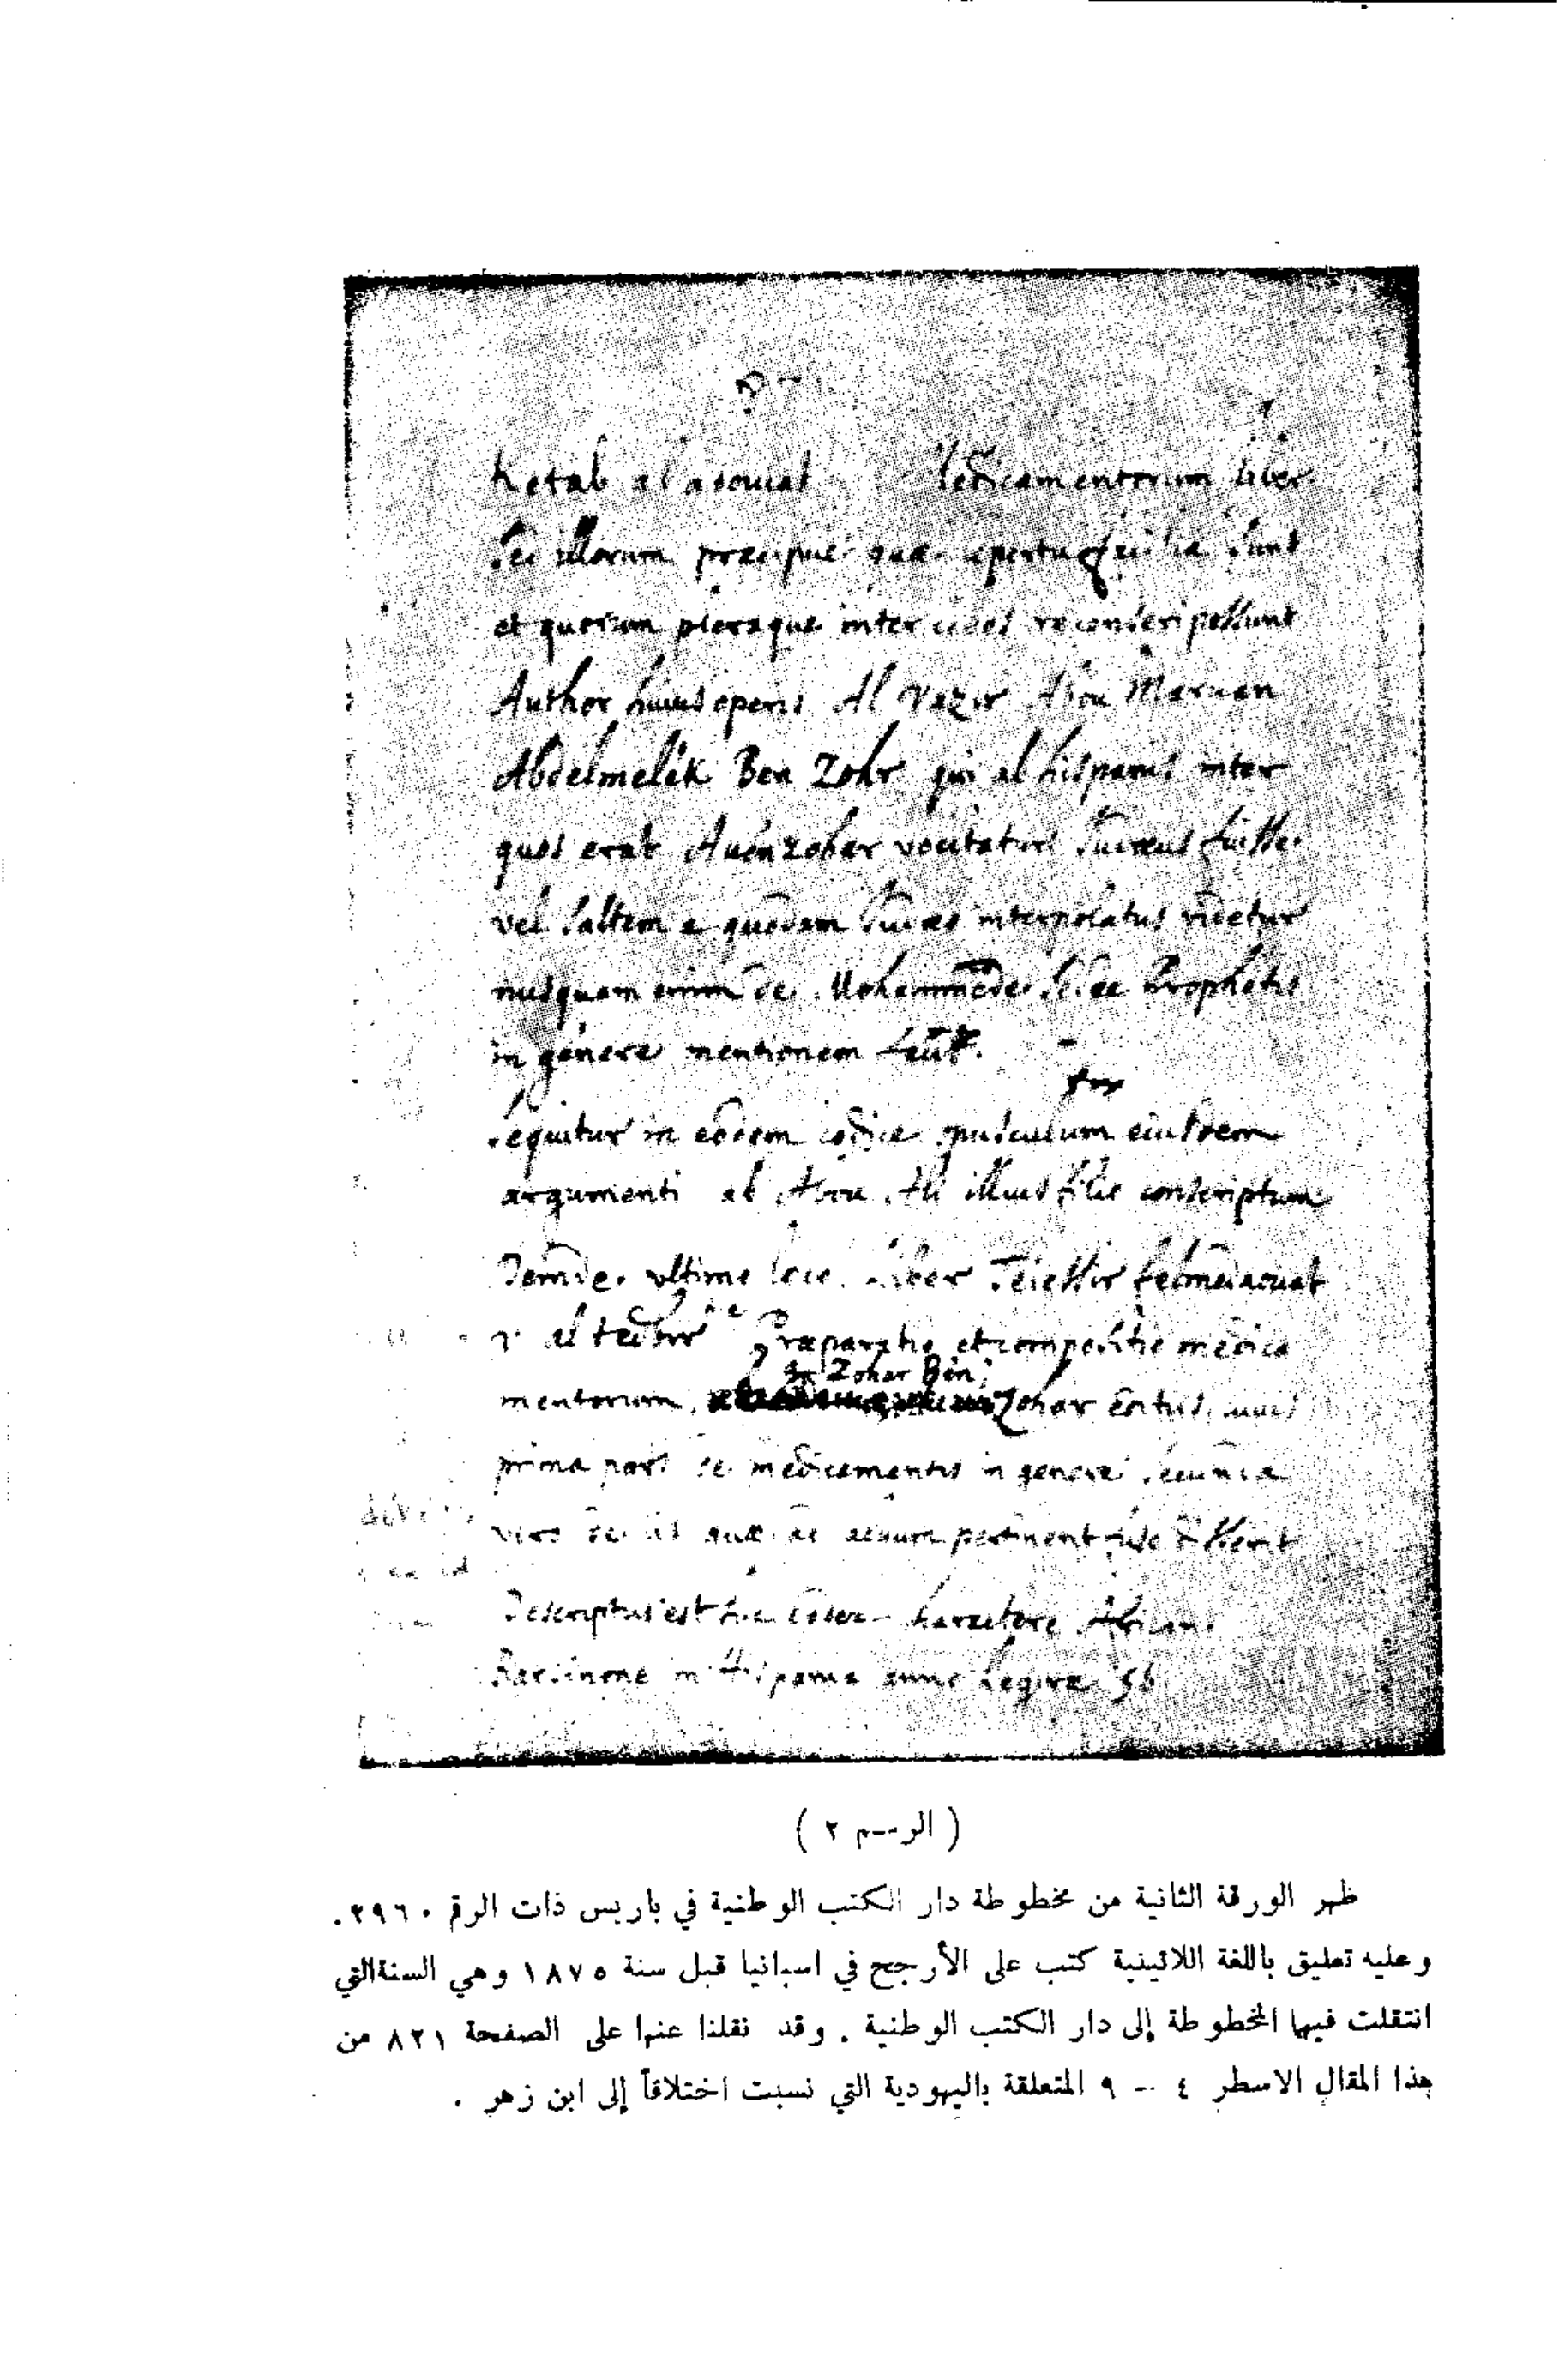 Ketab al adouiat Medicamentorum liber
seu illorum præcipue quæ sunt
et quorum pleraque inter
Author huius operis Al Vazir Abou Maruan
Abdelmelek Ben Zohr qui ab hispanis inter
quos erat Auenzohar vocitatur Iudæus fuisse
vel saltem a quodam Iudæo interpolatus videtur
nusquam enim de Mohammede sed de Prophetis
in genere mentionem facit.
sequitur in eodem codice opusculum eiusdem
argumenti ab Abou Ali illius filio conscriptum
Deinde ultimo loco Liber Teissir
al tedbir Præparatio et compositio medica
Zohar Ben
mentorum Zohar
prima pars de medicamentis in genere secunda
vero de iis quæ ad pertinent
Descriptus est hic codex charactere
in Hispania anno hegiræ
( الرسم ٢ )
ظهر الورقة الثانية من مخطوطة دار الكتب الوطنية في باريس ذات الرقم ٢٩٦٠.
وعليه تعليق باللغة اللاتينية كتب على الأرجح في اسبانيا قبل سنة ١٨٧٥ وهي السنة التي
انتقلت فيها المخطوطة إلى دار الكتب الوطنية . وقد نقلنا عنها على الصفحة ٨٢١ من
هذا المقال الاسطر ٤ - ٩ المتعلقة باليهودية التي نسبت اختلاقاً إلى ابن زهر .